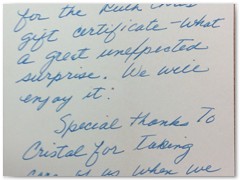 for the Ruth Chris
gift certificate - What
a great unexpected
surprise. We will
enjoy it!
Special thanks To
Cristal for Taking
care of us when we